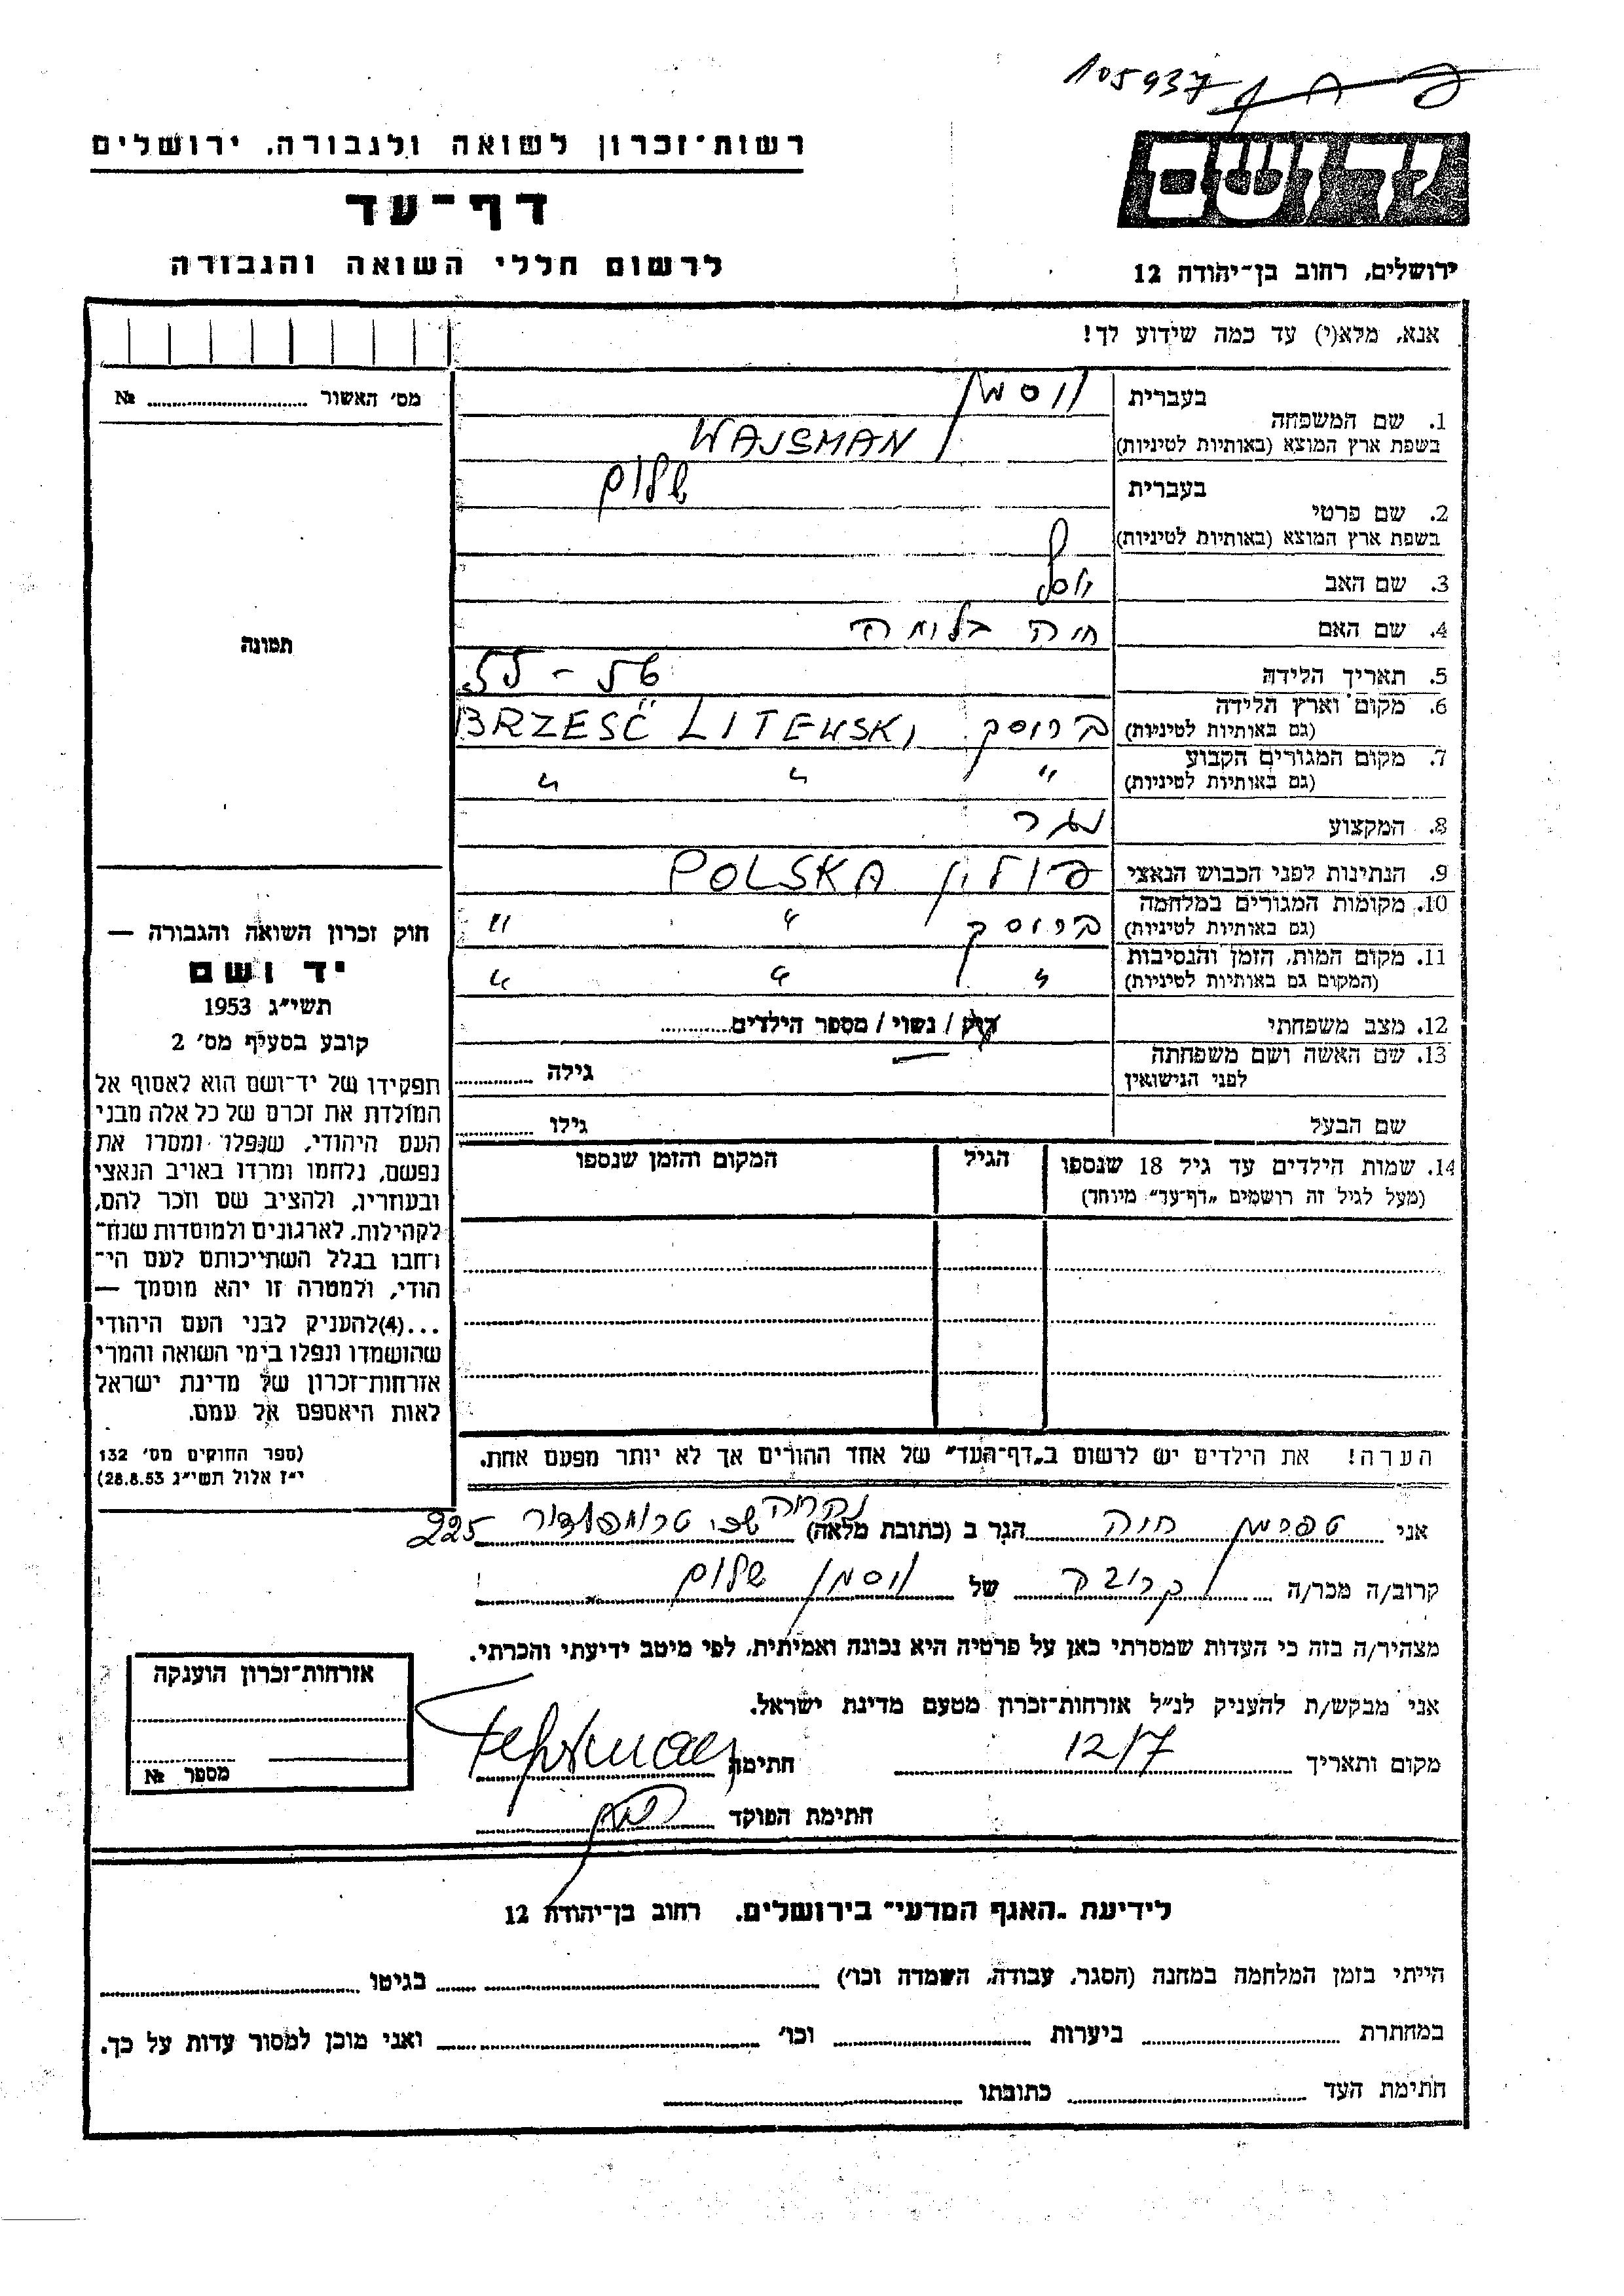 105937
רשות־זכרון לשואה ולגבורה, ירושלים
דף־עד
לרשום חללי השואה והגבורה
יד ושם
ירושלים, רחוב בן־יהודה 12
אנא, מלא(י) עד כמה שידוע לך!
מס׳ האשור № 
1. שם המשפחה
בעברית ווסמן
בשפת ארץ המוצא (באותיות לטיניות) WAJSMAN
2. שם פרטי
בעברית שלום
בשפת ארץ המוצא (באותיות לטיניות)
3. שם האב יוסף
4. שם האם חיה בלומה
5. תאריך הלידה
6. מקום וארץ הלידה
(גם באותיות לטיניות) בריסק BRZEŚĆ LITEWSKI
7. מקום המגורים הקבוע
(גם באותיות לטיניות) " " "
8. המקצוע נגר
9. הנתינות לפני הכבוש הנאצי פולין POLSKA
10. מקומות המגורים במלחמה
(גם באותיות לטיניות) בריסק " "
11. מקום המות, הזמן והנסיבות
(המקום גם באותיות לטיניות) " " "
12. מצב משפחתי רוק / נשוי / מספר הילדים
13. שם האשה ושם משפחתה
לפני הנישואין גילה
שם הבעל גילו
14. שמות הילדים עד גיל 18 שנספו
(מעל לגיל זה רושמים „דף־עד״ מיוחד)
הגיל
המקום והזמן שנספו
הערה! את הילדים יש לרשום ב„דף־העד״ של אחד ההורים אך לא יותר מפעם אחת.
תמונה
חוק זכרון השואה והגבורה —
יד ושם
תשי״ג 1953
קובע בסעיף מס׳ 2
תפקידו של יד־ושם הוא לאסוף אל
המולדת את זכרם של כל אלה מבני
העם היהודי, שנפלו ומסרו את
נפשם, נלחמו ומרדו באויב הנאצי
ובעוזריו, ולהציב שם וזכר להם,
לקהילות, לארגונים ולמוסדות שנח־
רחבו בגלל השתייכותם לעם הי־
הודי, ולמטרה זו יהא מוסמך —
...(4)להעניק לבני העם היהודי
שהושמדו ונפלו בימי השואה והמרי
אזרחות־זכרון של מדינת ישראל
לאות היאספם אל עמם.
(ספר החוקים מס׳ 132
י״ז אלול תשי״ג 28.8.53)
אני טפרמן חיה הגר ב (כתובת מלאה) נהריה שכ׳ טרומפלדור 225
קרוב/ה מכר/ה קרובה של ווסמן שלום
מצהיר/ה בזה כי העדות שמסרתי כאן על פרטיה היא נכונה ואמיתית, לפי מיטב ידיעתי והכרתי.
אני מבקש/ת להעניק לנ״ל אזרחות־זכרון מטעם מדינת ישראל.
מקום ותאריך 12/7 חתימה
חתימת הפוקד
אזרחות־זכרון הוענקה
מספר №
לידיעת „האגף המדעי״ בירושלים, רחוב בן־יהודה 12
הייתי בזמן המלחמה במחנה (הסגר, עבודה, השמדה וכו׳) בגיטו
במחתרת ביערות וכו׳ ואני מוכן למסור עדות על כך.
חתימת העד כתובתו